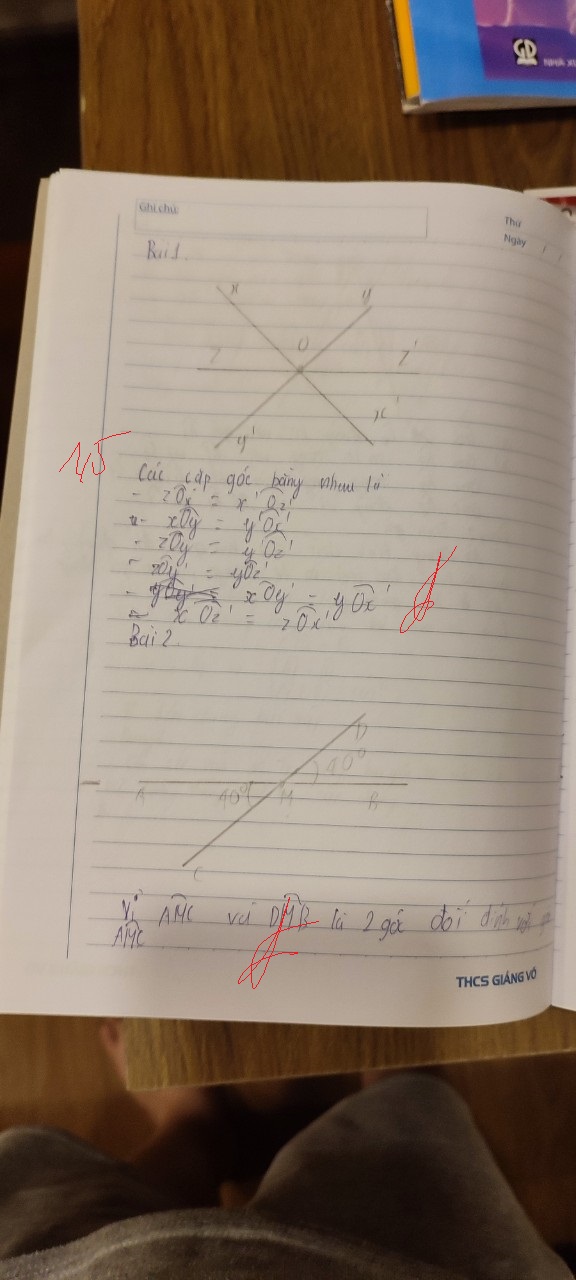 GD
NHÀ XU
Ghi chú:
Thứ
Ngày / /
Bài 1.
x
y
O
z
z'
x'
y'
1,5
Các cặp góc bằng nhau là
- zOx = x'Oz'
- xOy = y'Ox'
- zOy = y'Oz'
- zOy' = yOz'
- xOy' = yOx'
= xOz' = zOx'
Bài 2
D
40°
A
40°
M
B
C
Vì AMC và DMB là 2 góc đối đỉnh
AMC
THCS GIẢNG VÕ